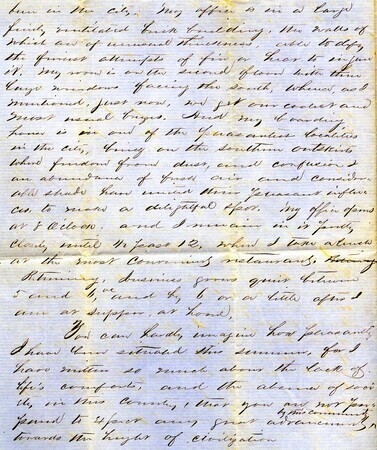 here in the city. My office is in a large
finely ventilated brick building, the walls of
which are of unusual thickness, able to defy
the fiercest attempts of fire or heat to injure
it. My room is on the second floor with three
large windows facing the south, where, as I
mentioned just now, we get our coolest and
most usual breezes. And my boarding
house is in one of the pleasantest localities
in the city, being on the southern outskirts
where freedom from dust, and confusion &
an abundance of fresh air and consider-
able shade have united their pleasant influen-
ces to make a delightful spot. My office opens
at 8 o'clock and I remain in it pretty
closely until ½ past 12, when I take a lunch
at the most convenient restaurant,
Returning, business grows quiet between
5 and 6, and by 6 or a little after I
am at supper, at home.
You can hardly imagine how pleasantly
I have been situated this summer, for I
have written so much about the lack of
life's comforts, and the absence of soci
ety in this country, that you are not pre
pared to expect any great advancement
by this community
towards the height of civilization